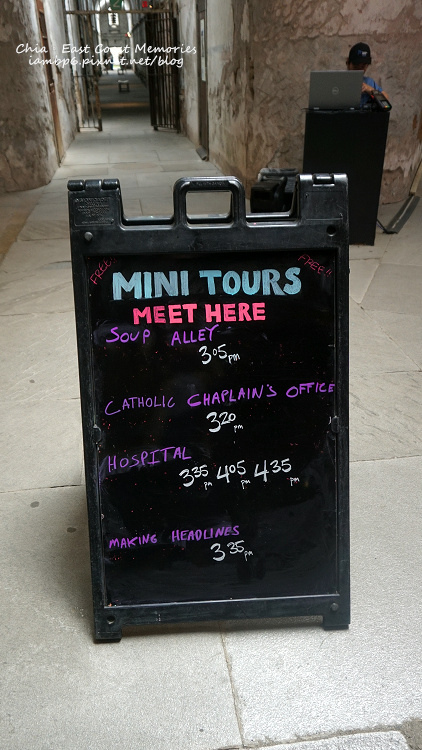 Chia East Coast Memories
iambp6.pixnet.net/blog
FREE!!
FREE!!
MINI TOURS
MEET HERE
SOUP ALLEY
3:05 pm
CATHOLIC CHAPLAIN'S OFFICE
3:20 pm
HOSPITAL
3:35 pm 4:05 pm 4:35 pm
MAKING HEADLINES
3:35 pm